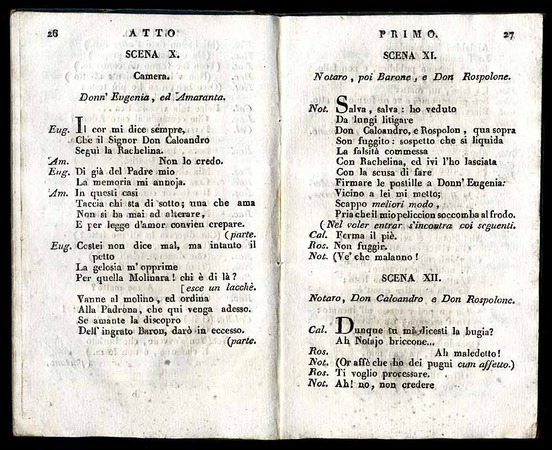 26 ATTO
SCENA X.
Camera.
Donn' Eugenia, ed Amaranta.
Eug. Il cor mi dice sempre,
Che il Signor Don Caloandro
Seguì la Rachelina.
Am. Non lo credo.
Eug. Di già del Padre mio
La memoria mi annoja.
Am. In questi casi
Taccia chi sta di sotto; una che ama
Non si ha mai ad alterare,
E per legge d'amor convien crepare.
(parte.
Eug. Costei non dice mal, ma intanto il
petto
La gelosia m' opprime
Per quella Molinara! chi è di là?
[esce un lacchè.
Vanne al molino, ed ordina
Alla Padrona, che quì venga adesso.
Se amante la discopro
Dell' ingrato Baron, darò in eccesso.
(parte.
PRIMO. 27
SCENA XI.
Notaro, poi Barone, e Don Rospolone.
Not. Salva, salva: ho veduto
Da lungi litigare
Don Caloandro, e Rospolon, qua sopra
Son fuggito: sospetto che si liquida
La falsità commessa
Con Rachelina, ed ivi l'ho lasciata
Con la scusa di fare
Firmare le postille a Donn' Eugenia:
Vicino a lei mi metto;
Scappo meliori modo,
Pria che il mio peliccion soccomba al frodo.
(Nel voler entrar s'incontra coi seguenti.
Cal. Ferma il piè.
Ros. Non fuggir.
Not. (Ve' che malanno!
SCENA XII.
Notaro, Don Caloandro e Don Rospolone.
Cal. Dunque tu mi dicesti la bugia?
Ah Notajo briccone...
Ros. Ah maledetto!
Not. (Or affè che ho dei pugni cum assetto.)
Ros. Ti voglio processare.
Not. Ah! no, non credere